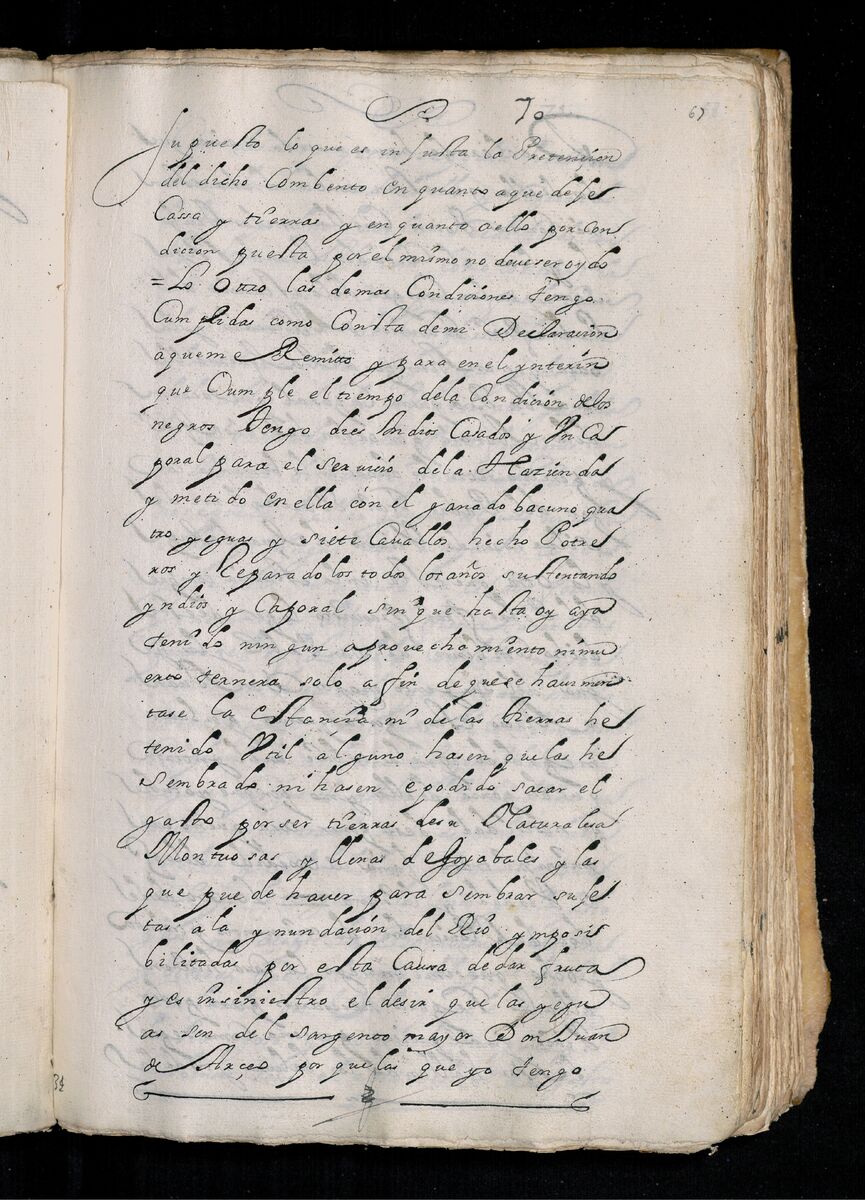 70
67
Supuesto lo que es insusta la Pretencion
del dicho Combento en quanto a que dese
Cassa y tierras y en quanto aello por con
dicion puesta por el mismo no deve ser oydo
= Lo Otro las demas Condiciones tengo
Cumplidas como Consta demi Declaracion
aqueme Remito y para en el ynterin
que Cumple el tiempo dela Condición delos
negros tengo dies Yndios Casados y Un Ca
poral para el servicio dela Hazienda
y metido en ella con el ganado bacuno qua
tro yeguas y siete Cavallos hecho Potre
ros y Reparadolos todos los años sustentando
yndios y Caporal sin que hasta oy aya
tenido ningun aprovechamiento nimu
erto ternera solo a fin de que se haumen
tase la estancia ni de las tierras he
tenido Util alguno hasen que las he
Sembrado ni hasen e podido sacar el
gasto por ser tierras desu Naturalesa
Montuosas y llenas de Goyabales y las
que puede haver para sembrar suje
tas a la ynundación del Rio ymposi
bilitadas por esta Causa dedar fruta
y es insiniestro el desir que las yegu
as son del sargento mayor Don Juan
de Arçeo por que las que yo tengo
34